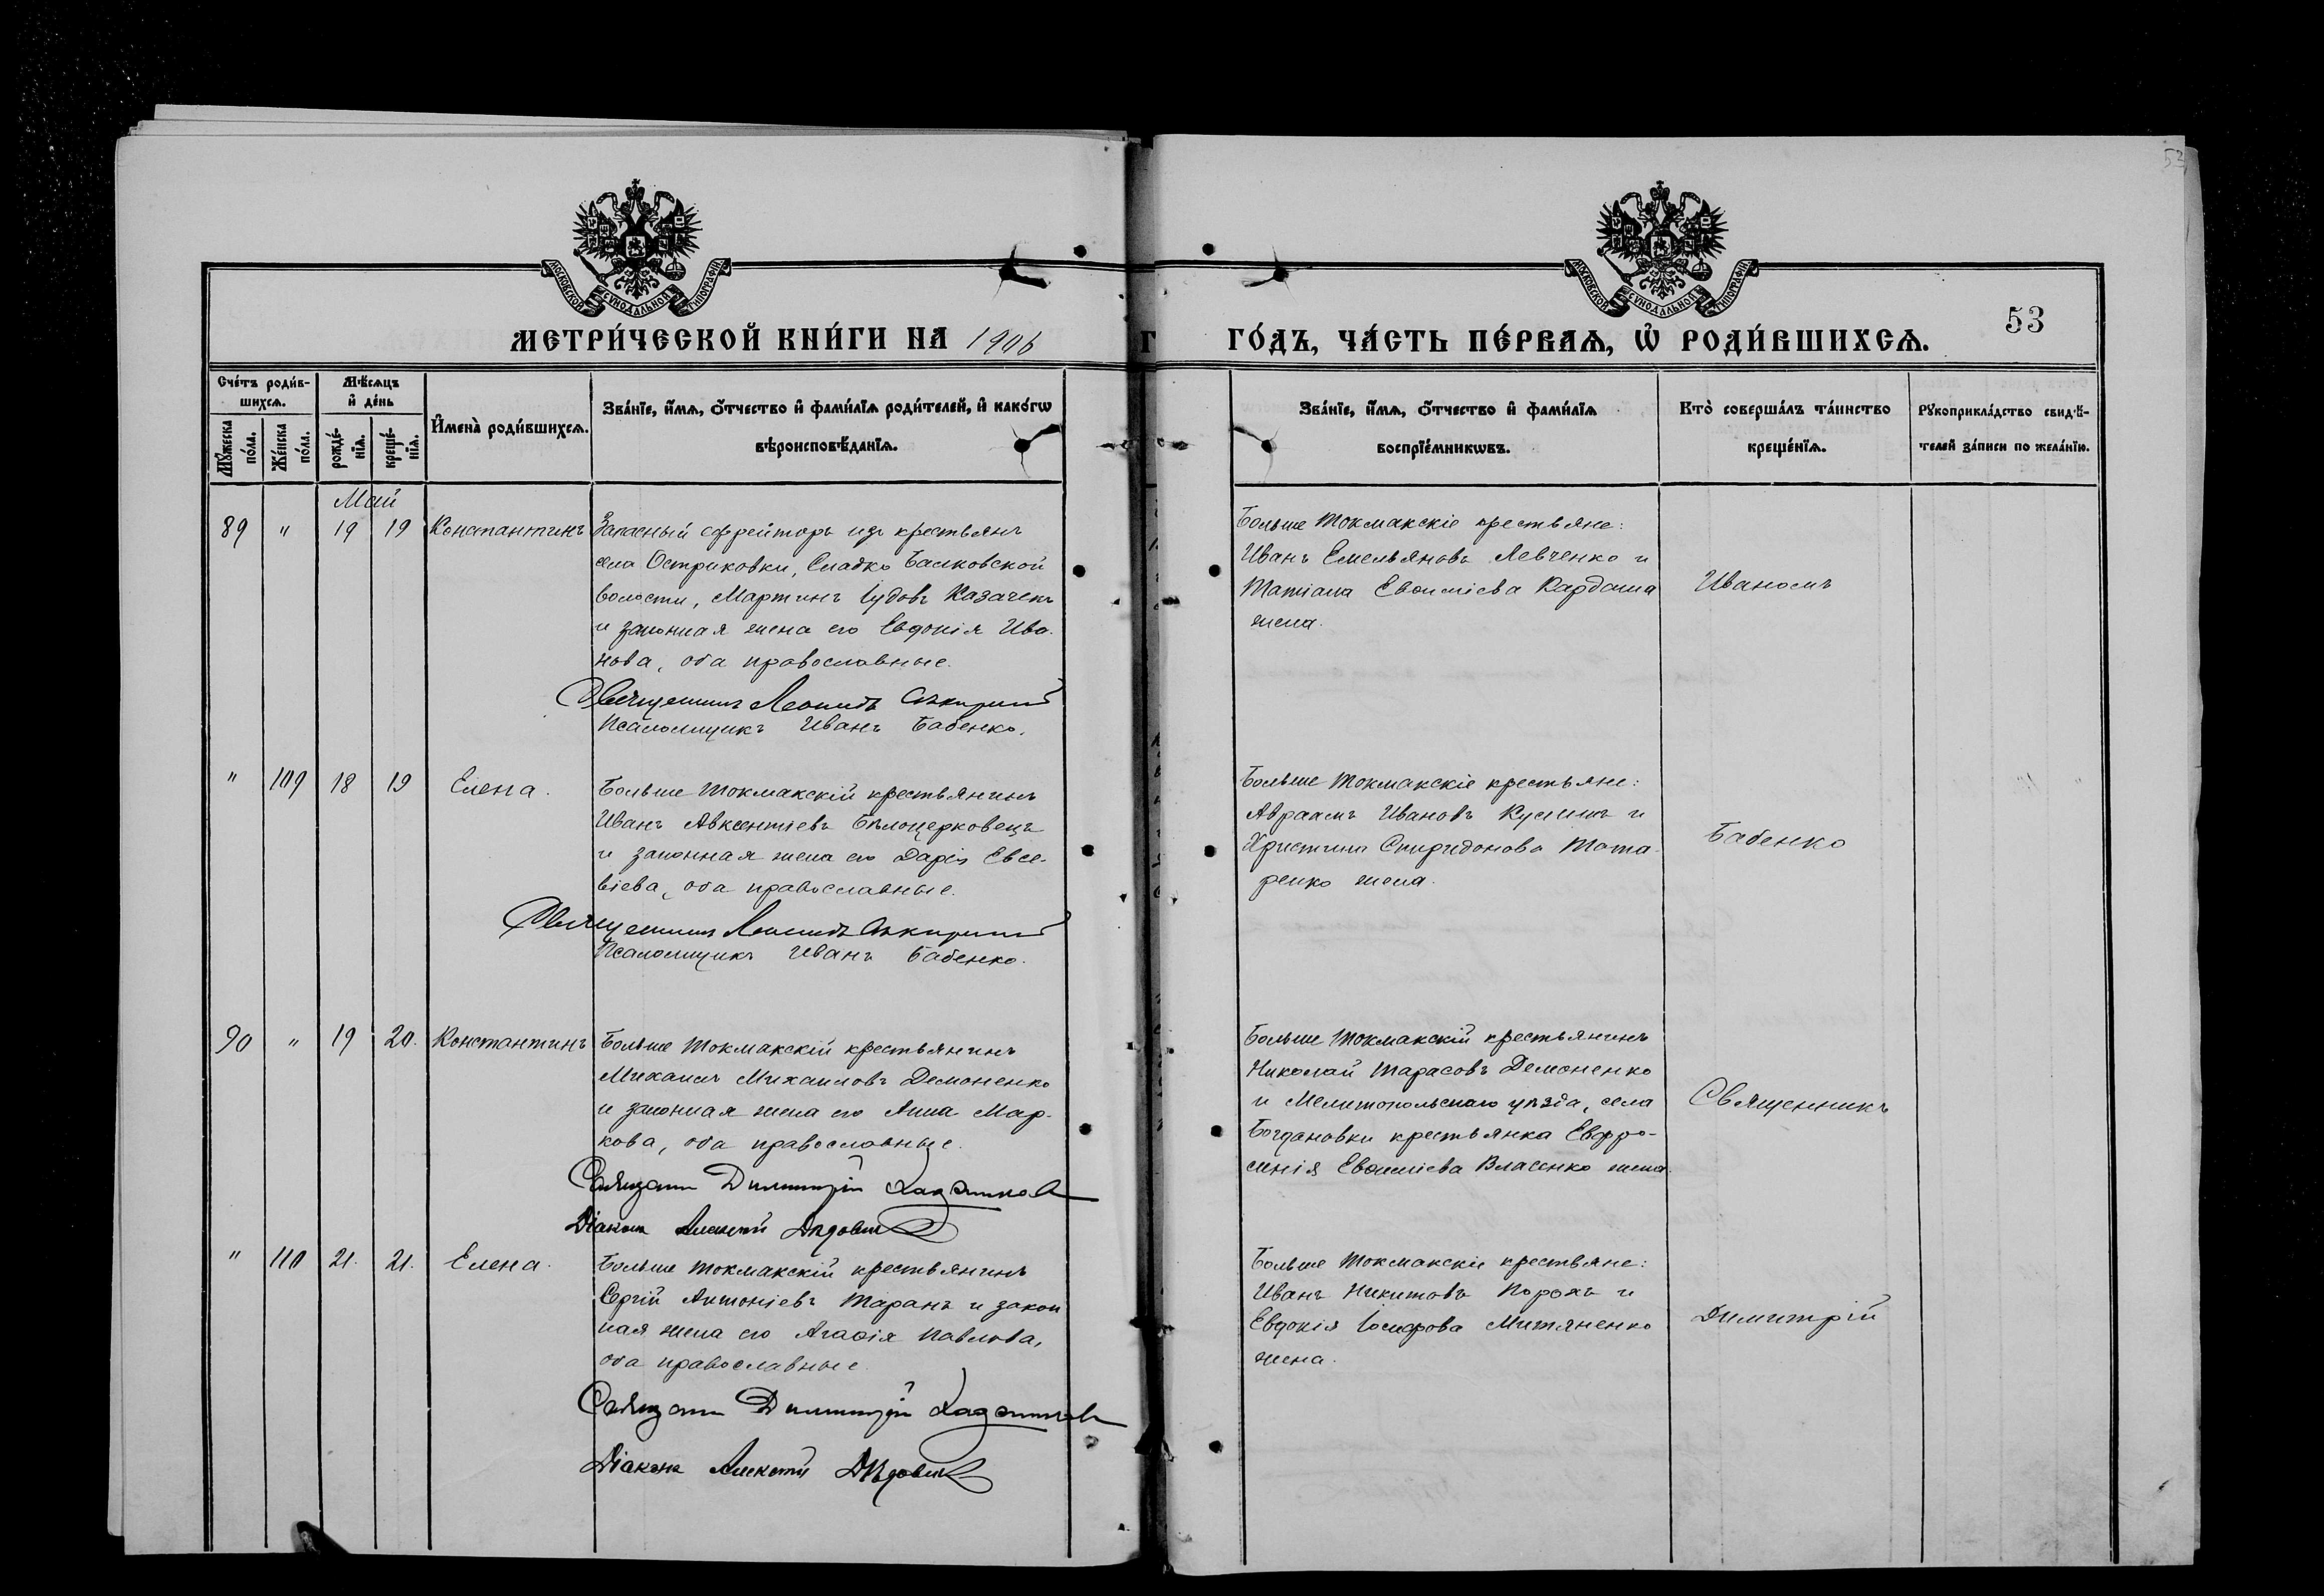 53
МОСКОВСКОЙ СѴНОДАЛЬНОЙ ТИПОГРАФІИ
МОСКОВСКОЙ СѴНОДАЛЬНОЙ ТИПОГРАФІИ
МЕТРИ́ЧЕСКОЙ КНИ́ГИ НА 1906
Г ГО́ДЪ, ЧА́СТЬ ПЕ́РВАѦ, Ѡ҆ РОДИ́ВШИХСѦ.
53
Сче́тъ роди́в-
шихсѧ.
Мѣ́сѧцъ
и҆ де́нь
Мꙋ́жеска по́ла.
Же́нска по́ла.
рожде́-нїѧ.
креще́-нїѧ.
И҆мена̀ роди́вшихсѧ.
Зва́нїе, и҆́мѧ, ѻ҆́тчество и҆ фами́лїѧ роди́телей, и҆ како́гѡ
вѣроисповѣ́данїѧ.
Зва́нїе, и҆́мѧ, ѻ҆́тчество и҆ фами́лїѧ
воспрїе́мникѡвъ.
Кто̀ соверша́лъ та́инство
креще́нїѧ.
Рꙋкоприкла́дство свидѣ́-
телей за́писи по жела́нїю.
Май
89 " 19 19 Константинъ
Запасный ефрейторъ изъ крестьянъ
села Остриковки, Сладко Балковской
волости, Мартинъ Іудовъ Казачекъ
и законная жена его Евдокія Ива-
нова, оба православные.
Священникъ Леонидъ
Псаломщикъ Иванъ Бабенко.
Больше Токмакскіе крестьяне:
Иванъ Емельяновъ Левченко и
Татіана Евѳиміева Кардаша
жена.
Иваномъ
" 109 18 19 Елена.
Больше Токмакскій крестьянинъ
Иванъ Авксентіевъ Бѣлоцерковецъ
и законная жена его Дарія Евсе-
віева, оба православные.
Священникъ Леонидъ
Псаломщикъ Иванъ Бабенко.
Больше Токмакскіе крестьяне:
Авраамъ Ивановъ и
Христина Спиридонова Тата-
ренко жена.
Бабенко
90 " 19 20. Константинъ
Больше Токмакскій крестьянинъ
Михаилъ Михаиловъ Демоненко
и законная жена его Анна Мар-
кова, оба православные.
Священникъ Димитрій
Діаконъ Алексій Дѣдовичъ
Больше Токмакскій крестьянинъ
Николай Тарасовъ Демоненко
и Мелитопольскаго уѣзда, села
Богдановки крестьянка Евфро-
синія Евѳиміева Власенко жена.
Священникъ
" 110 21. 21. Елена.
Больше Токмакскій крестьянинъ
Сергій Антоніевъ Таранъ и закон
ная жена его Агаѳія Павлова,
оба православные.
Священникъ Димитрій
Діаконъ Алексій Дѣдовичъ
Больше Токмакскіе крестьяне:
Иванъ Никитовъ Порохъ и
Евдокія Іосифова Митяненко
жена.
Димитрій